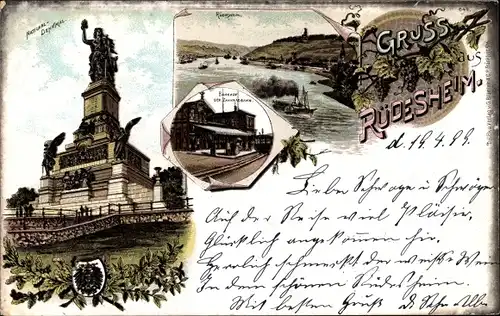 NATIONAL-DENKMAL
RHEINSTEIN
BAHNHOF
DER ZAHNRADBAHN
GRUSS
aus
RÜDESHEIM.
d. 19.4.99.
Lieber Schwager u Schwäger
Auf der Reise viel Pläsier,
Glücklich angekommen hir.
Herrlich schmeckt der weiße Wein
In dem schönen Rüdesheim.
Mit besten Gruß